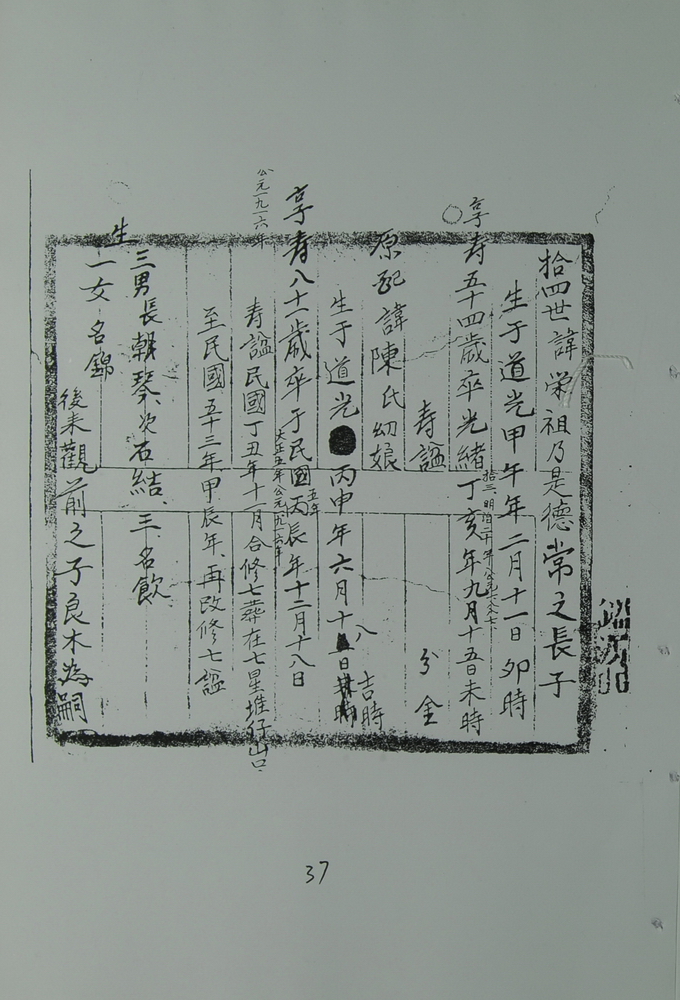 拾四世諱榮祖乃是德常之長子
生于道光甲午年二月十一日卯時
享寿五十四歲卒光緒丁亥年九月十五日未時
拾三、明治二十年公元一八八七
寿謚 分金
原配諱陳氏幼娘
生于道光丙申年六月十八日吉時
享寿八十一歲卒于民國丙辰年十二月十八日
五年
大正五年公元一九一六年
公元一九一六年
寿謚民國丁丑年十一月合修七葬在七星堆仔山口
至民國五十三年甲辰年、再改修七謚
三男長朝琴、次石結、三、名飲
生一女名錦
後来觀前之子良木為嗣
37